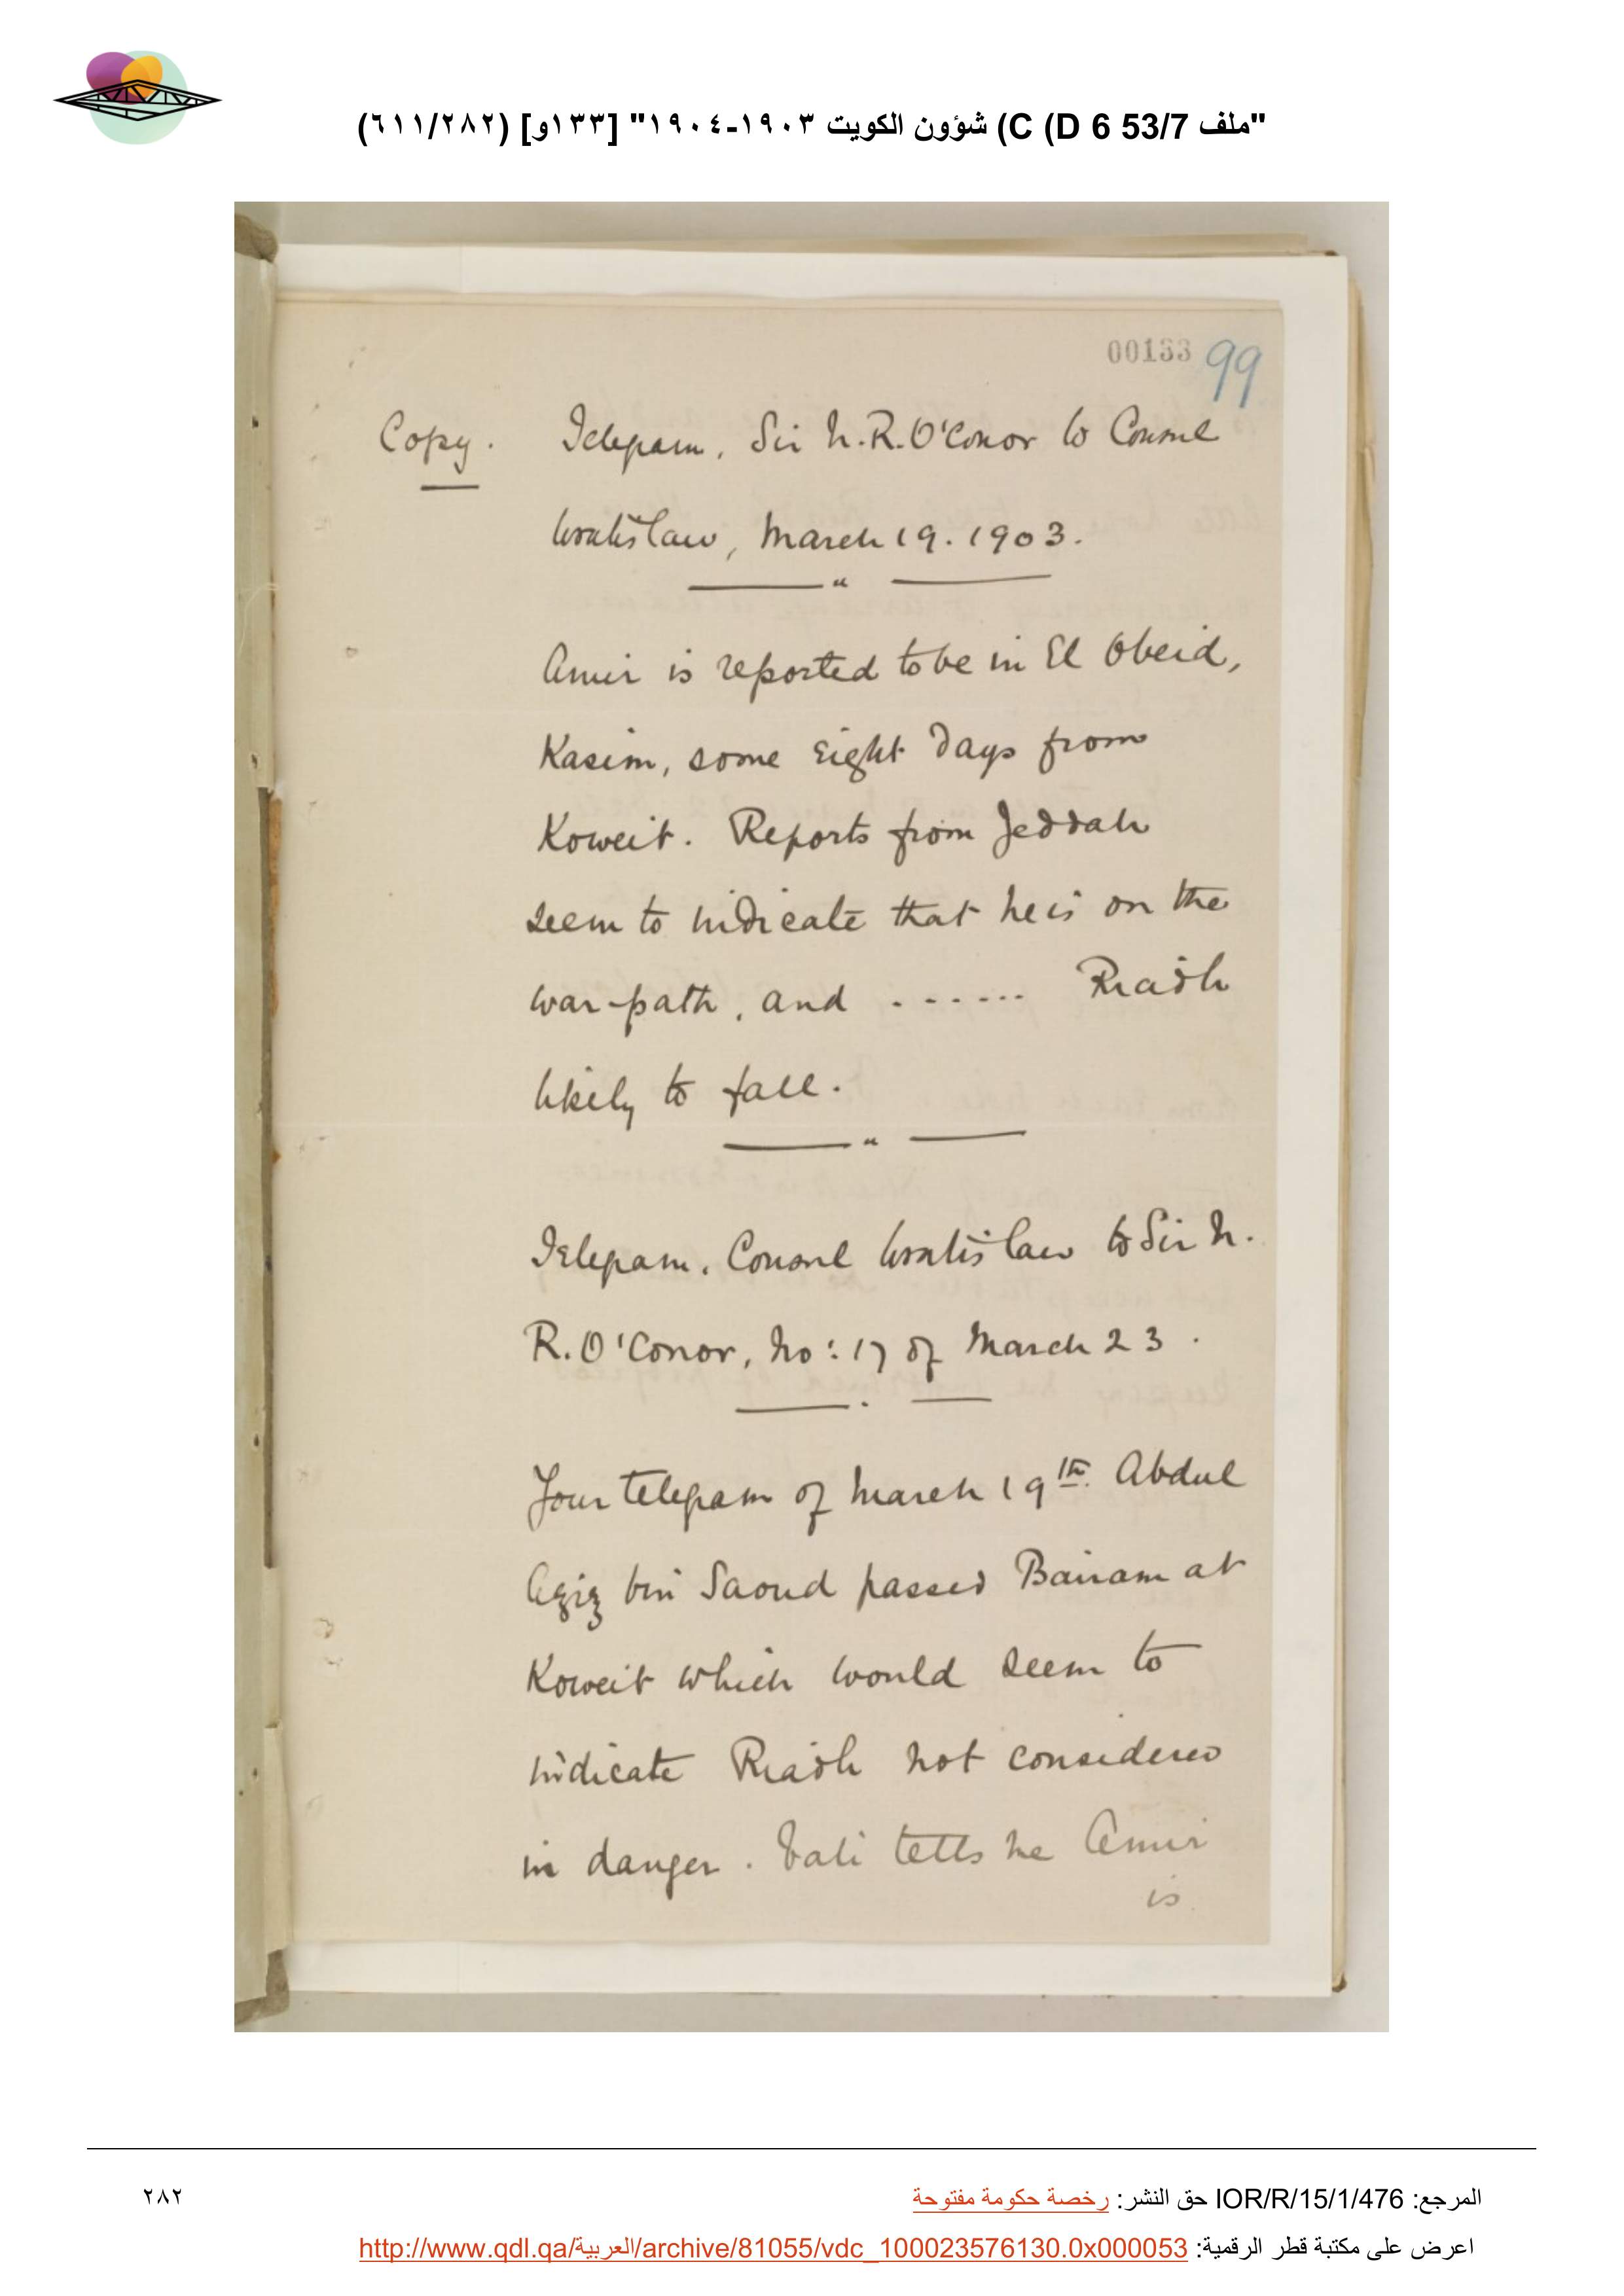 "ملف 53/7 C (D 6) شؤون الكويت ١٩٠٣-١٩٠٤" [١٣٣و] (٦١١/٢٨٢)
00133 99
Copy. Telegram. Sir N.R.O'Conor to Consul
Wratislaw, March 19. 1903.
Amir is reported to be in El Obeid,
Kasim, some eight days from
Koweit. Reports from Jeddah
seem to indicate that he is on the
war-path, and ...... Riadh
likely to fall.
Telegram. Consul Wratislaw to Sir N.
R. O'Conor, No: 17 of March 23.
Your telegram of March 19th. Abdul
Aziz bin Saoud passed Bairam at
Koweit which would seem to
indicate Riadh not considered
in danger. Vali tells me Amir
is
المرجع: IOR/R/15/1/476 حق النشر: رخصة حكومة مفتوحة
٢٨٢
اعرض على مكتبة قطر الرقمية: http://www.qdl.qa/العربية/archive/81055/vdc_100023576130.0x000053